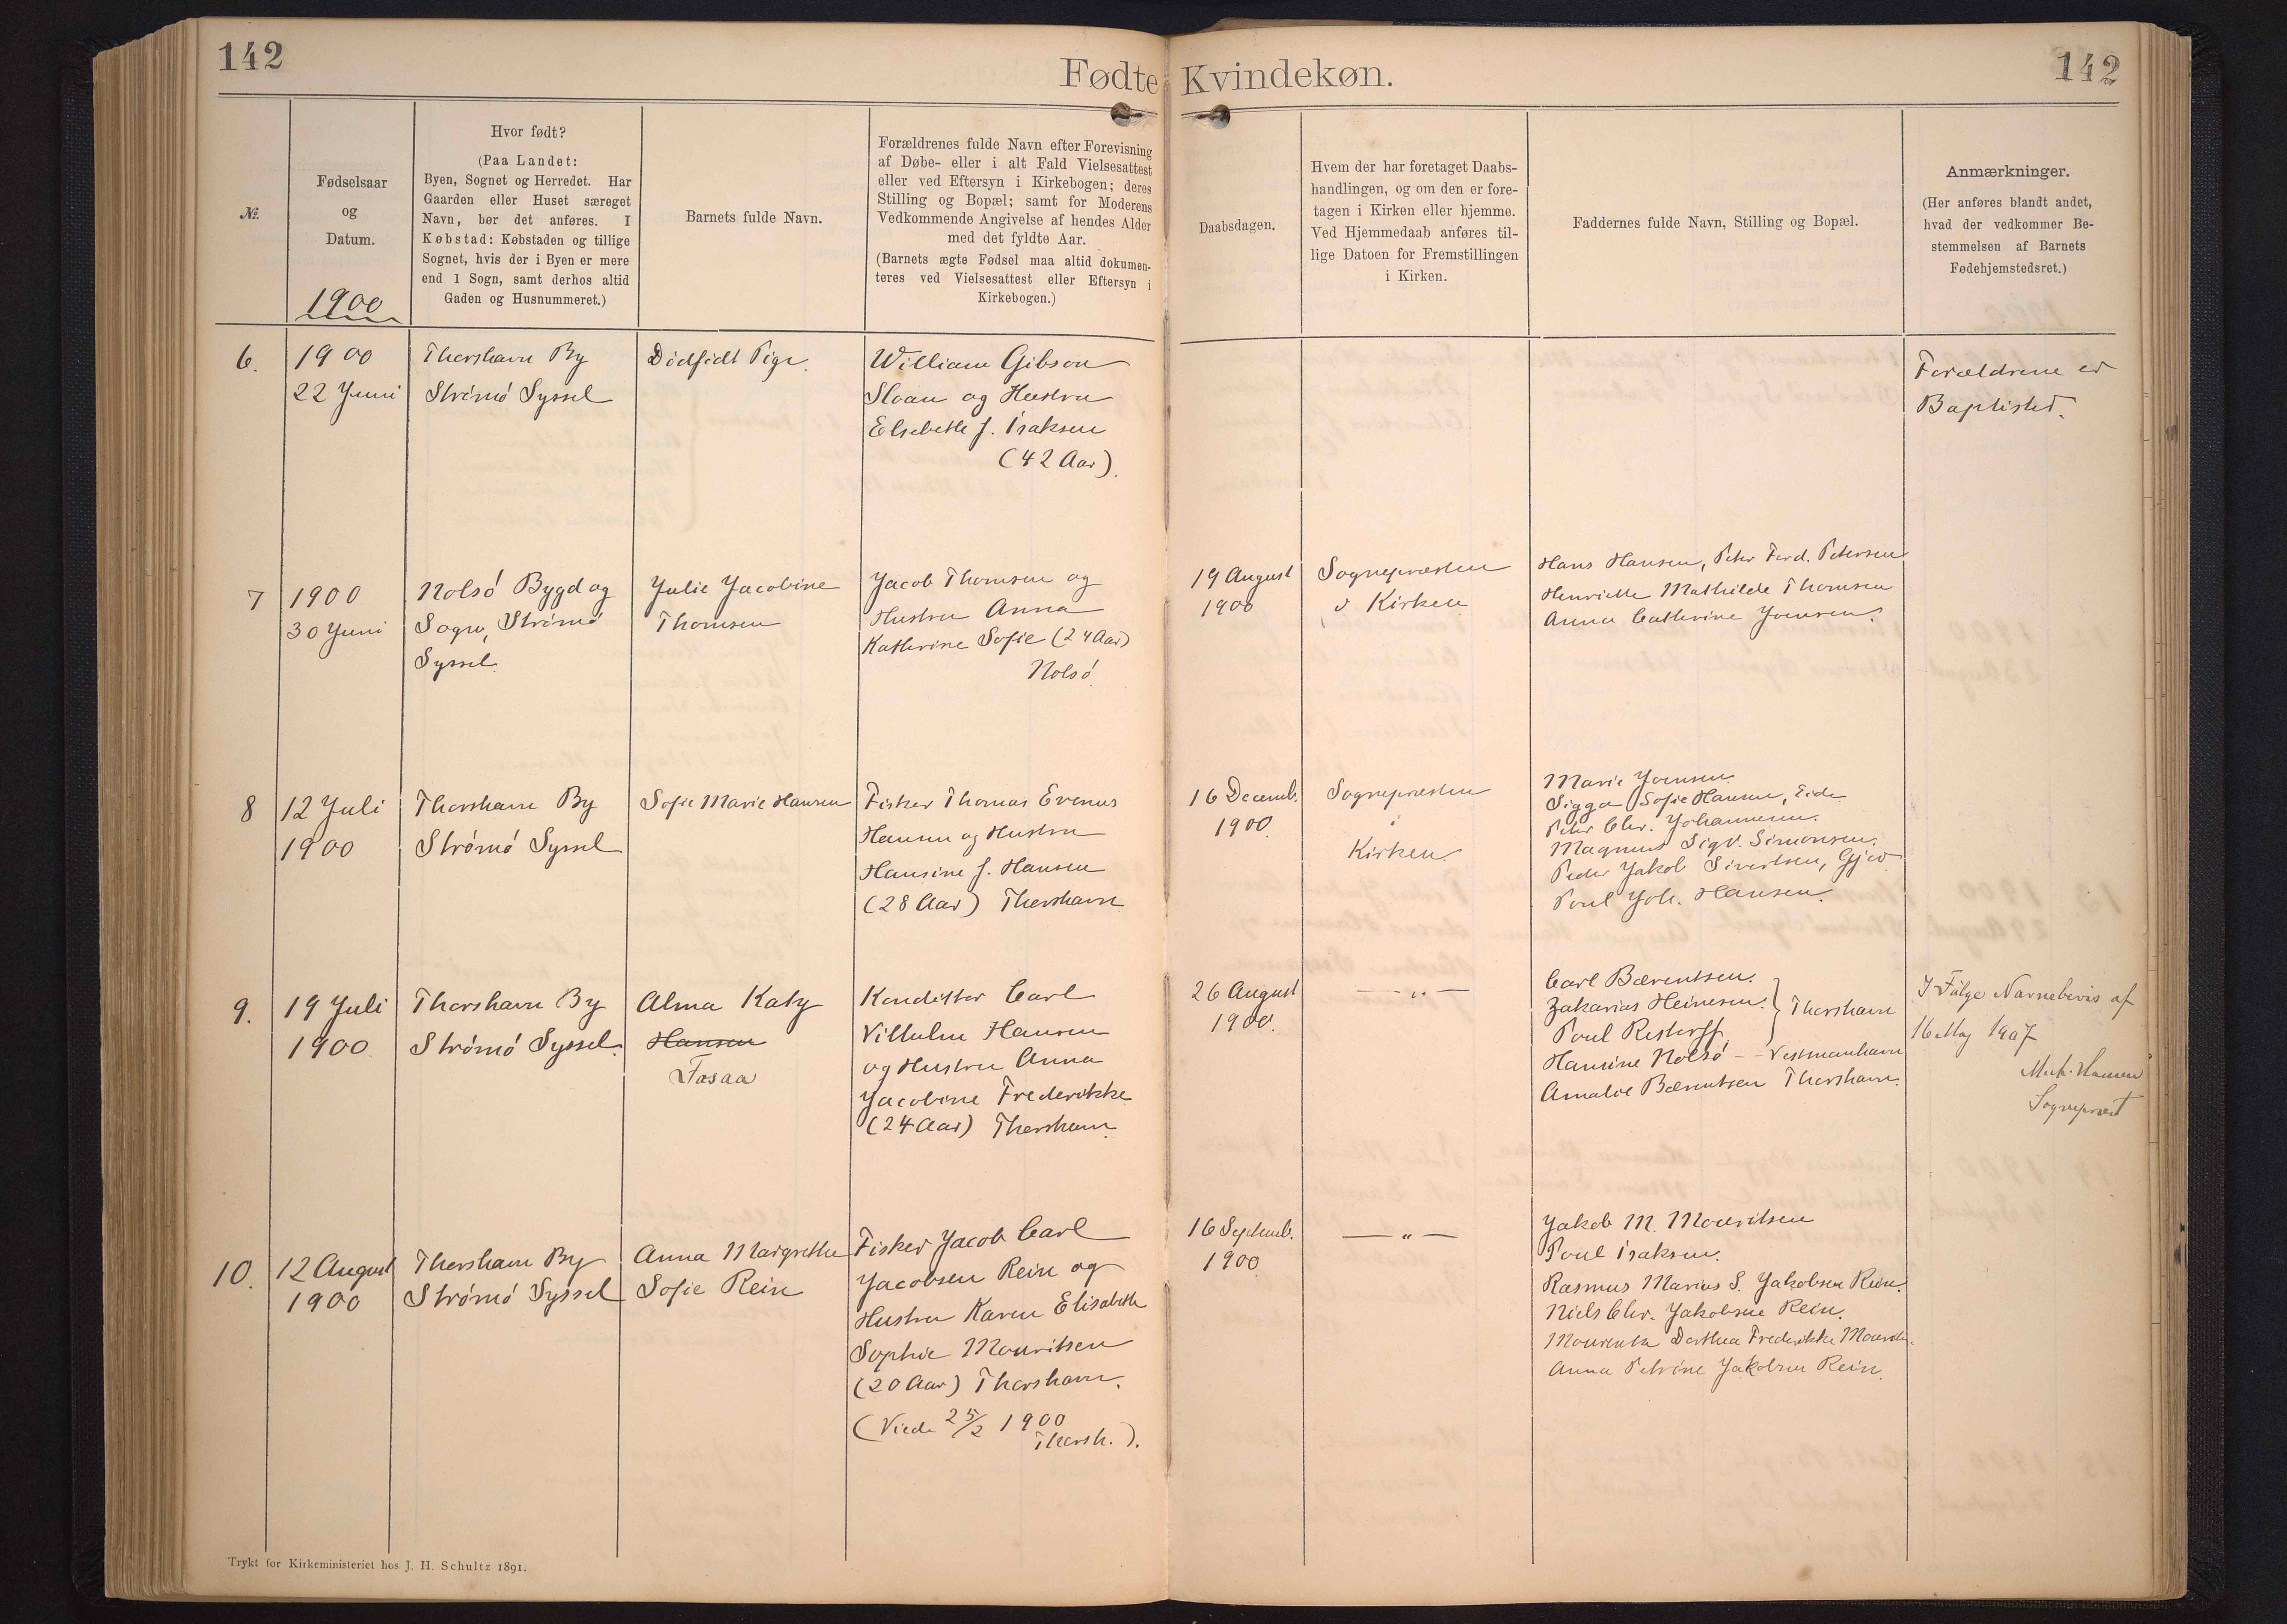 142
Fødte Kvindekøn.
142
№.
Fødselsaar
og
Datum.
1900
Hvor født?
(Paa Landet:
Byen, Sognet og Herredet. Har
Gaarden eller Huset særeget
Navn, bør det anføres. I
Købstad: Købstaden og tillige
Sognet, hvis der i Byen er mere
end 1 Sogn, samt derhos altid
Gaden og Husnummeret.)
Barnets fulde Navn.
Forældrenes fulde Navn efter Forevisning
af Døbe- eller i alt Fald Vielsesattest
eller ved Eftersyn i Kirkebogen; deres
Stilling og Bopæl; samt for Moderens
Vedkommende Angivelse af hendes Alder
med det fyldte Aar.
(Barnets ægte Fødsel maa altid dokumen-
teres ved Vielsesattest eller Eftersyn i
Kirkebogen.)
Daabsdagen.
Hvem der har foretaget Daabs-
handlingen, og om den er fore-
tagen i Kirken eller hjemme.
Ved Hjemmedaab anføres til-
lige Datoen for Fremstillingen
i Kirken.
Faddernes fulde Navn, Stilling og Bopæl.
Anmærkninger.
(Her anføres blandt andet,
hvad der vedkommer Be-
stemmelsen af Barnets
Fødehjemstedsret.)
6.
1900
22 Juni
Thorshavn By
Strømø Syssel
Dødfødt Pige.
William Gibson
Sloan og Hustru
Elsebeth f. Isaksen
(42 Aar).
Forældrene er
Baptister.
7
1900
30 Juni
Nolsø Bygd og
Sogn, Strømø
Syssel.
Julie Jacobine
Thomsen
Jacob Thomsen og
Hustru Anna
Kathrine Sofie (24 Aar)
Nolsø.
19 August
1900
Sognepræsten
i Kirken
Hans Hansen, Peter Ferd. Petersen
Henriette Mathilde Thomsen
Anna Cathrine Joensen.
8
12 Juli
1900
Thorshavn By
Strømø Syssel
Sofie Marie Hansen
Fisker Thomas Evenus
Hansen og Hustru
Hansine f. Hansen
(28 Aar) Thorshavn
16 Decemb.
1900.
Sognepræsten
i
Kirken.
Marie Joensen
Sigga Sofie Hansen, Eide
Peter Chr. Johannesen.
Magnus Sigv. Simonsen.
Peder Jakob Sivertsen, Gjov
Poul Joh. Hansen.
9.
19 Juli
1900.
Thorshavn By
Strømø Syssel.
Alma Katy
Hansen
Fosaa
Konditor Carl
Vilhelm Hansen
og Hustru Anna
Jacobine Frederikke
(24 Aar) Thorshavn.
26 August
1900.
— „ —
Carl Bærentsen.
Zakarias Heinesen.
Poul Restorff
Thorshavn
Hansine Nolsø - Vestmanhavn
Amalie Bærentsen Thorshavn.
I Følge Navnebevis af
16 Maj 1907
Hansen
Sognepræst
10.
12 August
1900
Thorshavn By
Strømø Syssel
Anna Margrethe
Sofie Rein
Fisker Jacob Carl
Jacobsen Rein og
Hustru Karen Elisabeth
Sophie Mouritsen
(20 Aar) Thorshavn.
(Viede 25/2 1900
Thorsh.).
16 Septemb.
1900
— „ —
Jakob M. Mouritsen
Poul Isaksen.
Rasmus Marius S. Jakobsen Rein.
Niels Chr. Jakobsen Rein.
Dorthea Frederikke
Anna Petrine Jakobsen Rein.
Trykt for Kirkeministeriet hos J. H. Schultz 1891.